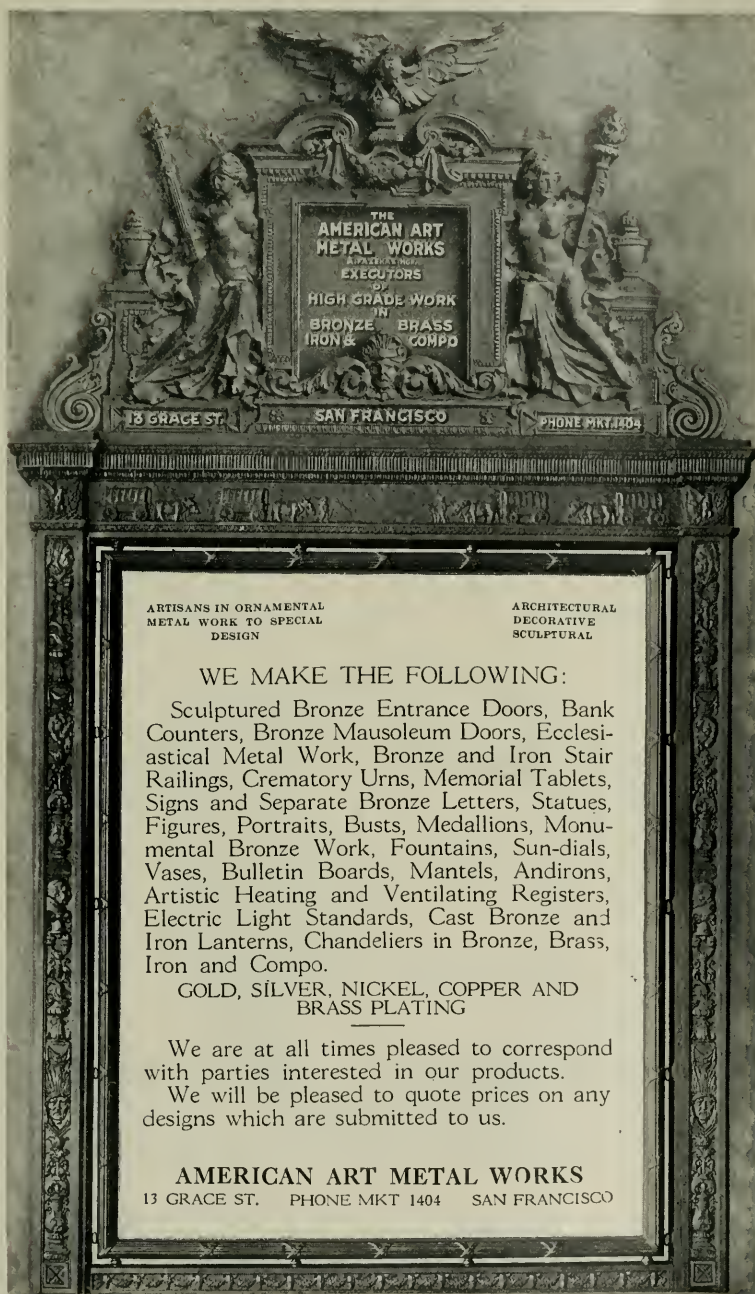 THE
AMERICAN ART
METAL WORKS
EXECUTORS
OF
HIGH GRADE WORK
IN
BRONZE BRASS
IRON & COMPO
13 GRACE ST. SAN FRANCISCO PHONE MKT. 1404
ARTISANS IN ORNAMENTAL
METAL WORK TO SPECIAL
DESIGN
ARCHITECTURAL
DECORATIVE
SCULPTURAL
WE MAKE THE FOLLOWING:
Sculptured Bronze Entrance Doors, Bank
Counters, Bronze Mausoleum Doors, Ecclesi-
astical Metal Work, Bronze and Iron Stair
Railings, Crematory Urns, Memorial Tablets,
Signs and Separate Bronze Letters, Statues,
Figures, Portraits, Busts, Medallions, Monu-
mental Bronze Work, Fountains, Sun-dials,
Vases, Bulletin Boards, Mantels, Andirons,
Artistic Heating and Ventilating Registers,
Electric Light Standards, Cast Bronze and
Iron Lanterns, Chandeliers in Bronze, Brass,
Iron and Compo.
GOLD, SILVER, NICKEL, COPPER AND
BRASS PLATING
We are at all times pleased to correspond
with parties interested in our products.
We will be pleased to quote prices on any
designs which are submitted to us.
AMERICAN ART METAL WORKS
13 GRACE ST. PHONE MKT 1404 SAN FRANCISCO